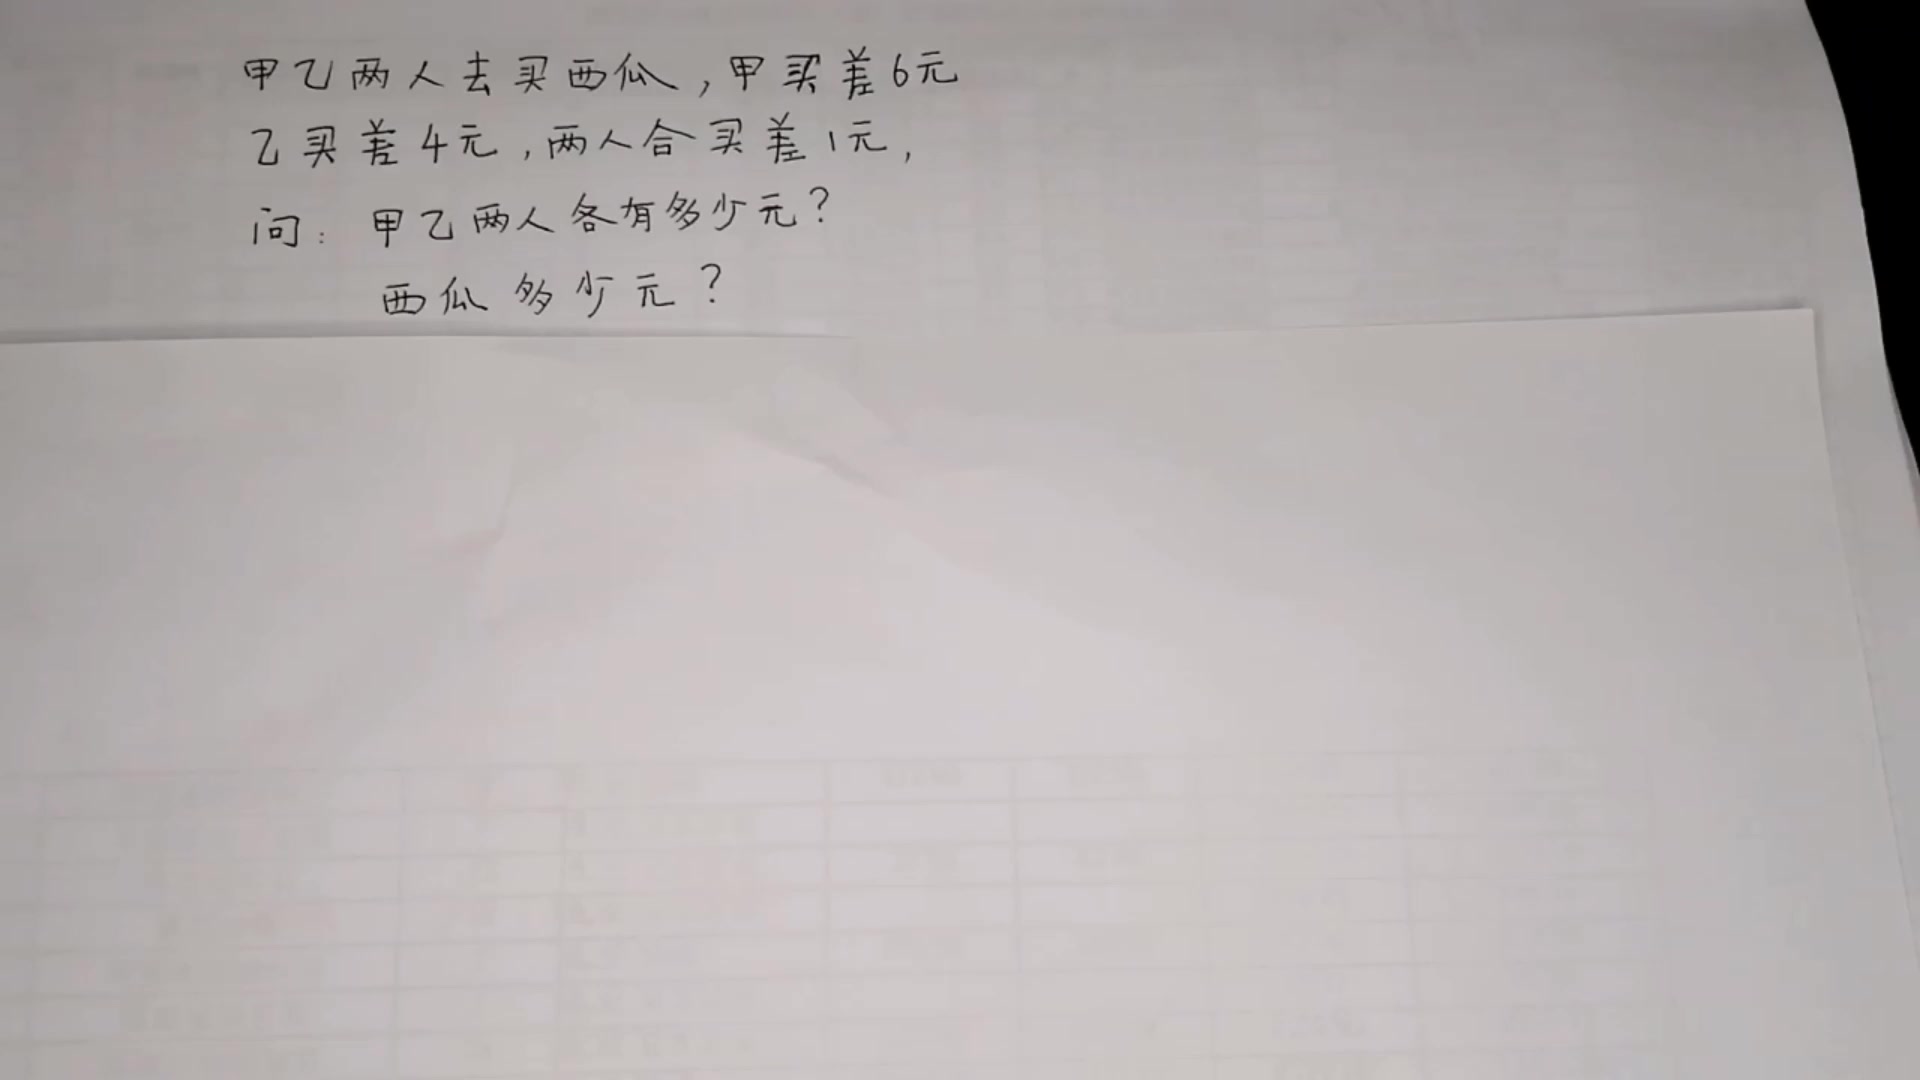 甲乙两人去买西瓜，甲买差6元
乙买差4元，两人合买差1元，
问：甲乙两人各有多少元？
西瓜多少元？